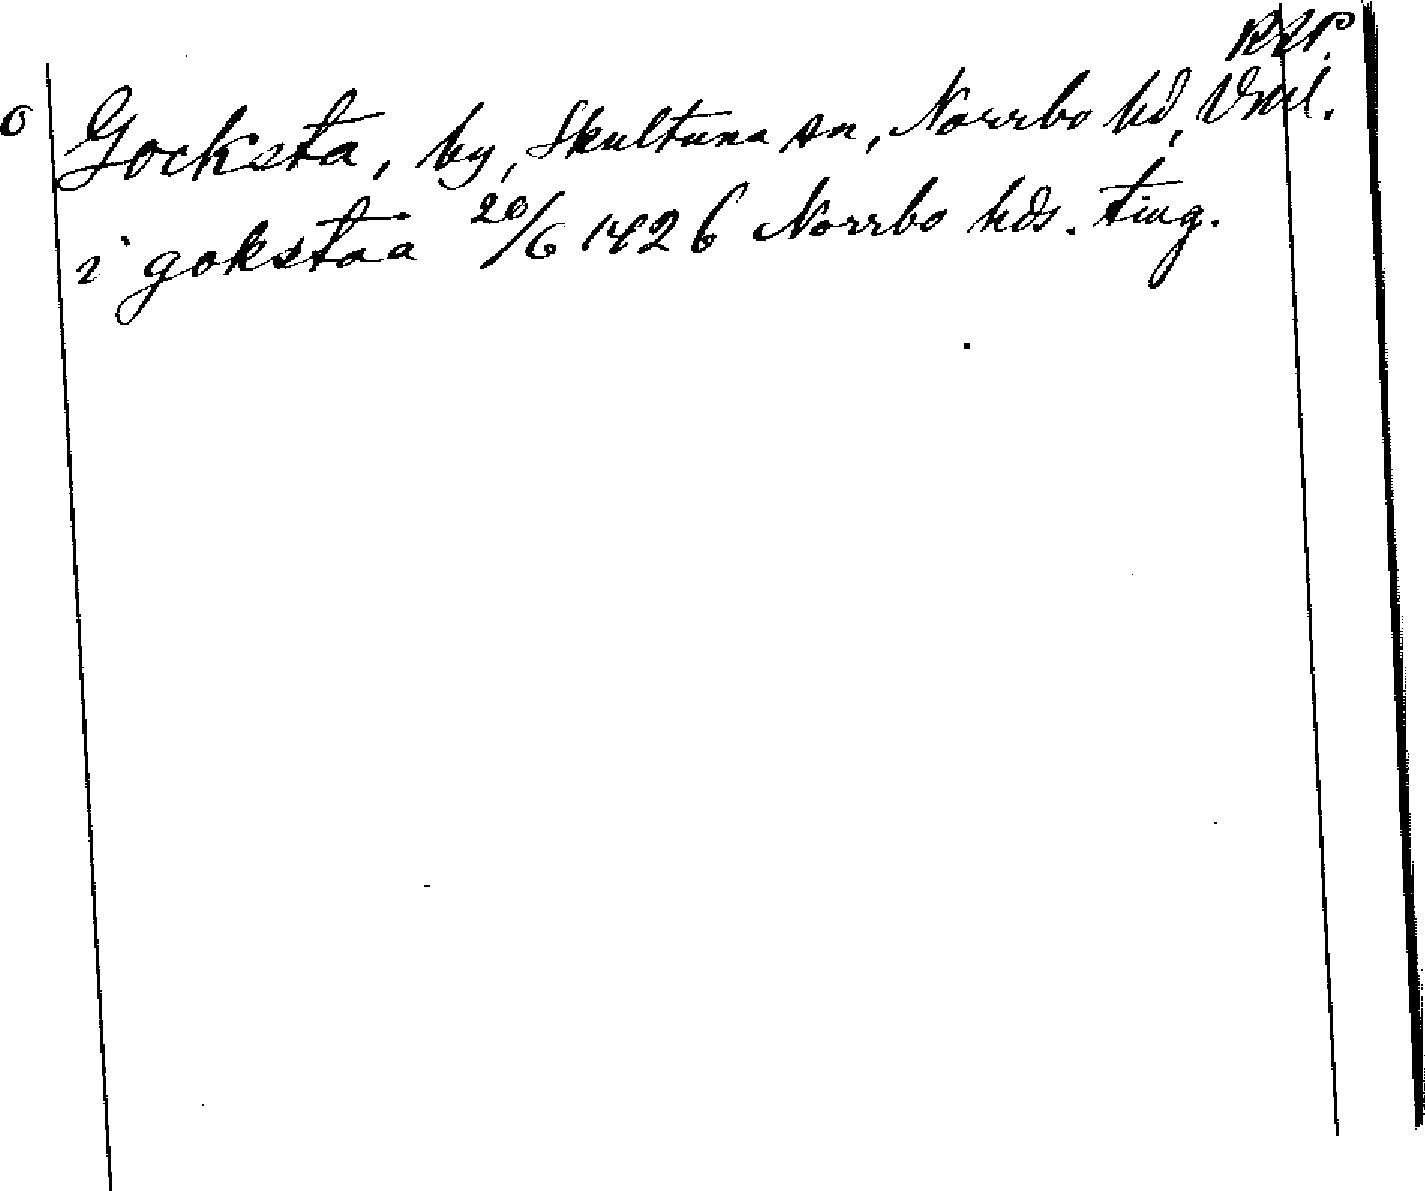 RAP.
o Gocksta, by, Skultuna sn, Norrbo hd, Vml.
i gokstaa 20/6 1426 Norrbo hds. ting.